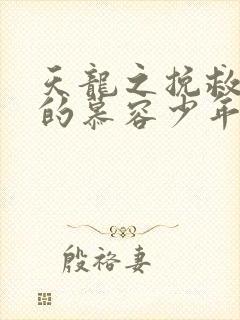 天龍之挽救
的慕容少年
殷裕妻